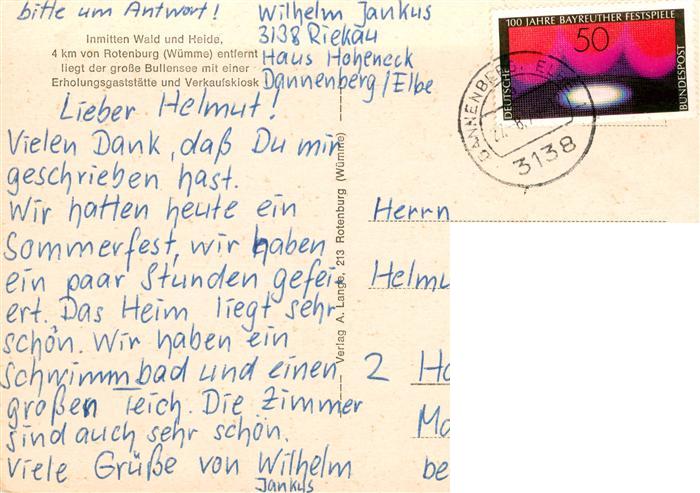 bitte um Antwort!
Wilhelm Jankus
3138 Riekau
Haus Hoheneck
Dannenberg/Elbe
Inmitten Wald und Heide,
4 km von Rotenburg (Wümme) entfernt
liegt der große Bullensee mit einer
Erholungsgaststätte und Verkaufskiosk
Lieber Helmut!
Vielen Dank, daß Du mir
geschrieben hast.
Wir hatten heute ein
Sommerfest, wir haben
ein paar Stunden gefei-
ert. Das Heim liegt sehr
schön. Wir haben ein
Schwimmbad und einen
großen Teich. Die Zimmer
sind auch sehr schön.
Viele Grüße von Wilhelm
Jankus
Verlag A. Lange, 213 Rotenburg (Wümme)
100 JAHRE BAYREUTHER FESTSPIELE
50
DEUTSCHE
BUNDESPOST
DANNENBERG
3138
Herrn
Helmu
2 Ha
Mo
be